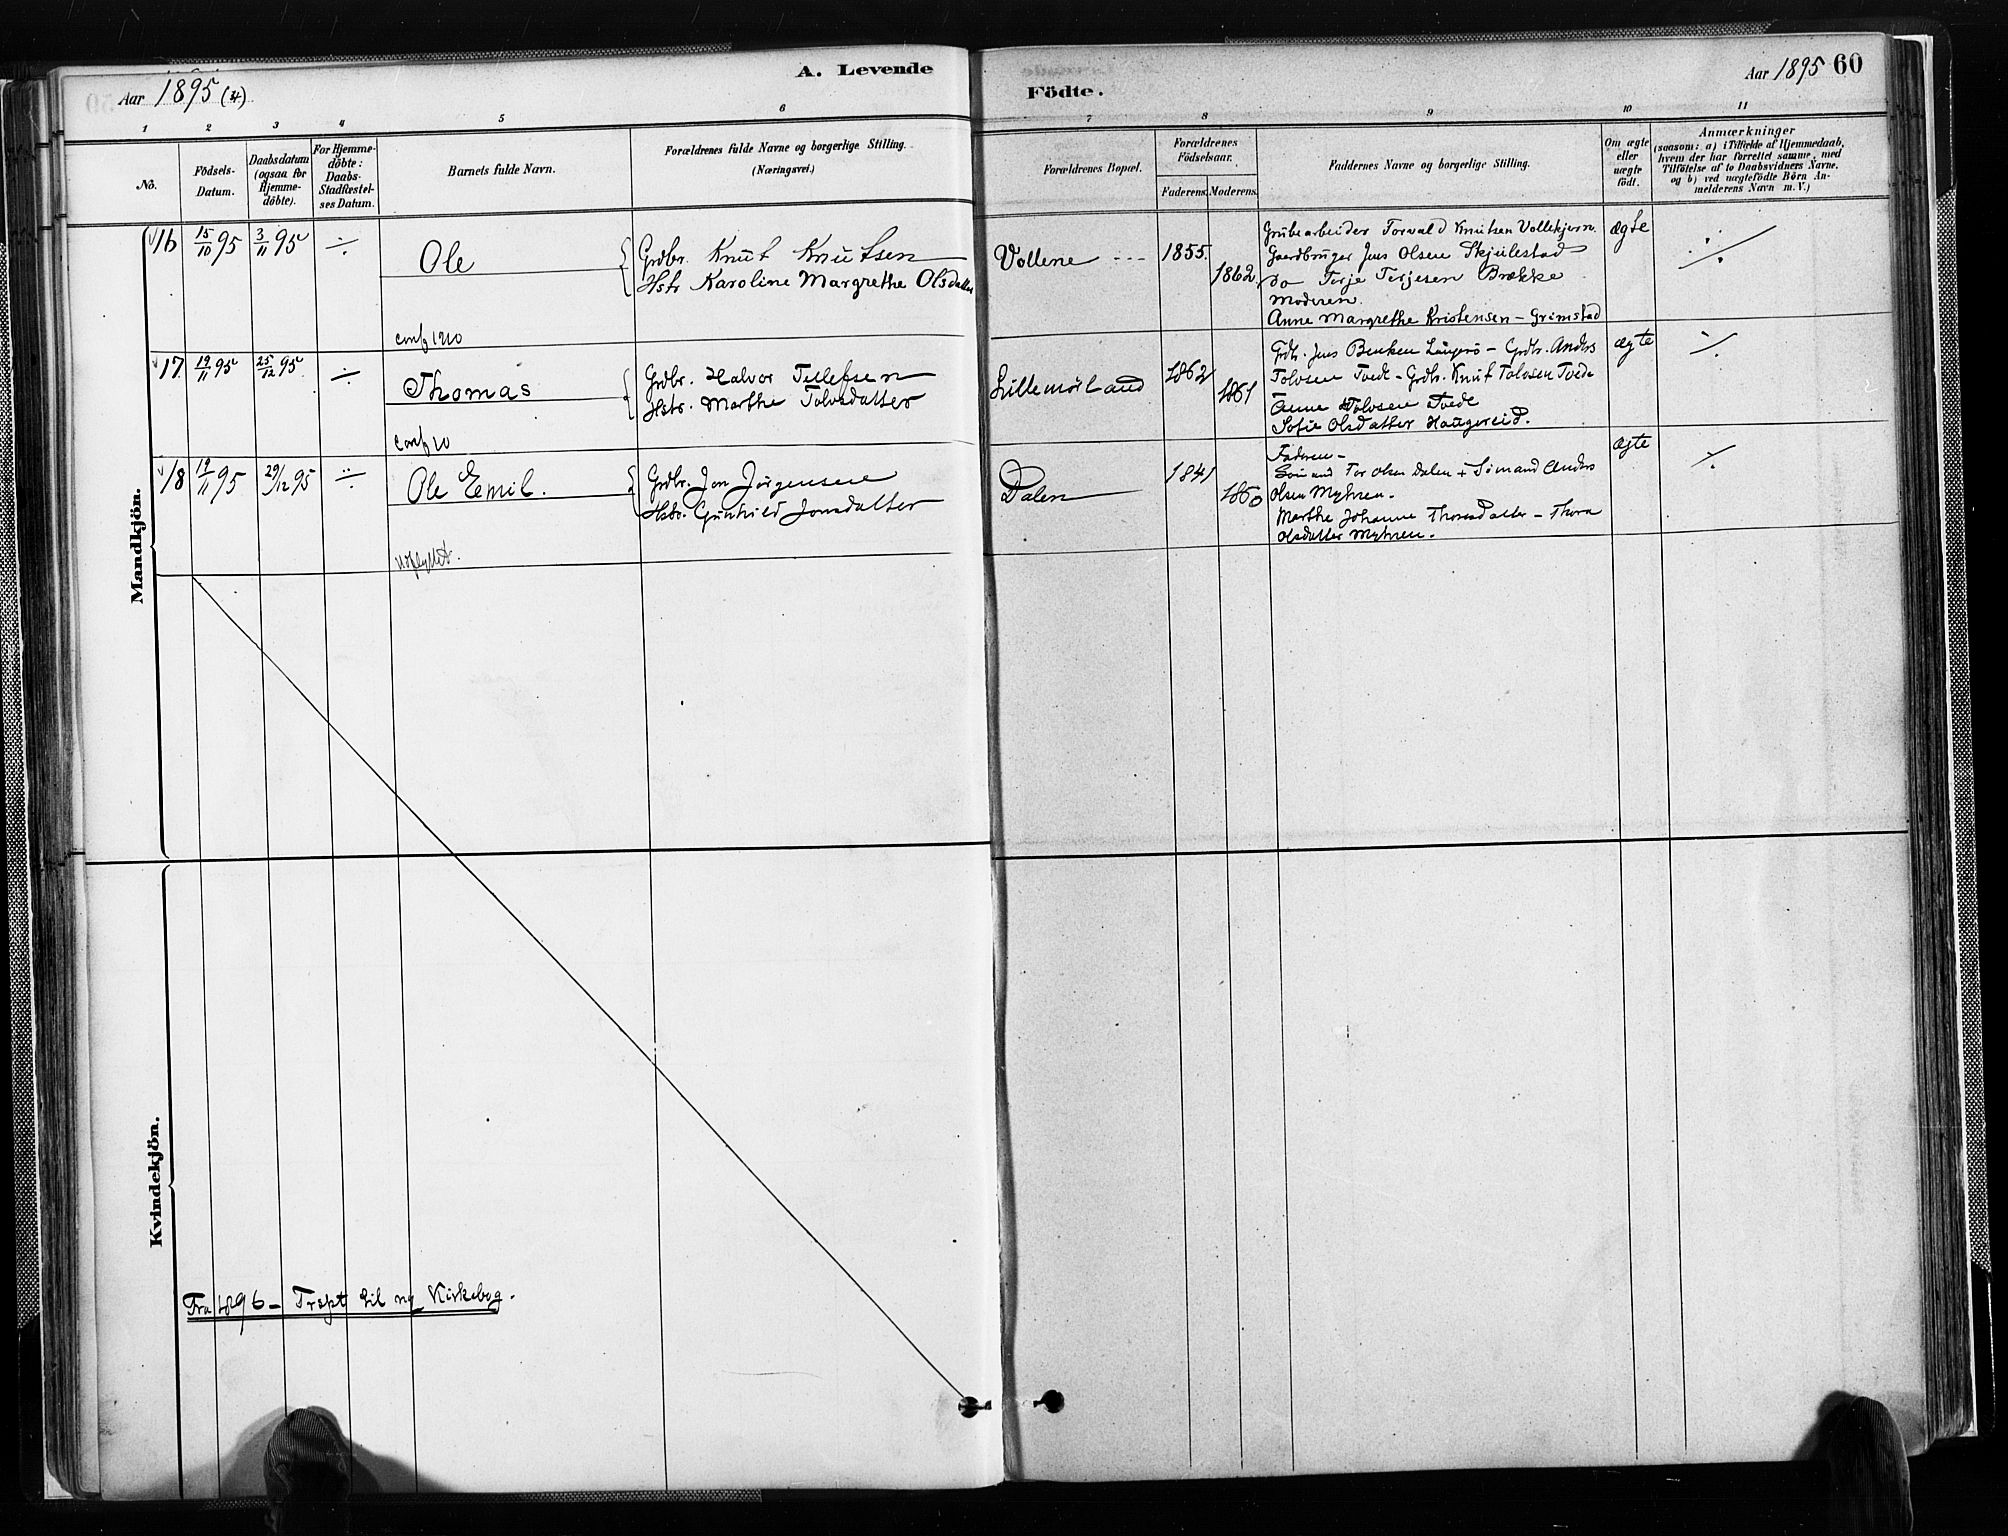 Aar 1895 (4)
A. Levende
Födte.
Aar 1895 60
1 2 3 4 5 6 7 8 9 10 11
No.
Födsels-
Datum.
Daabsdatum
(ogsaa for
Hjemme-
döbte).
For Hjemme-
döbte:
Daabs-
Stadfæstel-
ses Datum.
Barnets fulde Navn.
Forældrenes fulde Navne og borgerlige Stilling.
(Næringsvei.)
Forældrenes Bopæl.
Forældrenes
Födselsaar.
Faderens. Moderens.
Faddernes Navne og borgerlige Stilling.
Om ægte
eller
uægte
födt.
Anmærkninger
(saasom: a) i Tilfælde af Hjemmedaab,
hvem der har forrettet samme, med
Tilföielse af to Daabsvidners Navne.
og b) ved uægtefödte Börn An-
melderens Navn m. V.)
Mandkjön.
16 15/10 95 3/11 95 ÷ Ole
Grdbr. Knut Knutsen
Hstr Karoline Margrethe Olsdatter
Vollene 1855. 1862.
Grubearbeider Torvald Knutsen Vollekjern.
Gaardbruger Jens Olsen Skjulestad
do Terje Terjesen Brække
Moderen.
Anne Margrethe Kristensen - Grimstad
ægte ÷
conf 1910
17. 19/11 95 25/12 95 ÷ Thomas
Grdbr. Halvor Tellefsen
Hstr. Marthe Tolvsdatter
Lillemörland 1862 1861
Grdb. Jens Langerö - Grdb. Anders
Tolvsen Tvede - Grdb. Knut Tolvsen Tvede
Anne Tolvsen Tvede
Sofie Olsdatter Haugereid.
ægte ÷
conf 10
18 19/11 95 29/12 95 ÷ Ole Emil.
Grdbr. Jon Jörgensen
Hstr. Gunhild Jonsdatter
Dalen 1841 1860
Faderen -
Sömand Tor Olsen Dalen + Sömand Anders
Olsen Myhren.
Marthe Johanne Thoresdatter - Thora
Olsdatter Myhren.
ægte ÷
udflyttet.
Kvindekjön.
Fra 1896 - Trspt til ny Kirkebog.